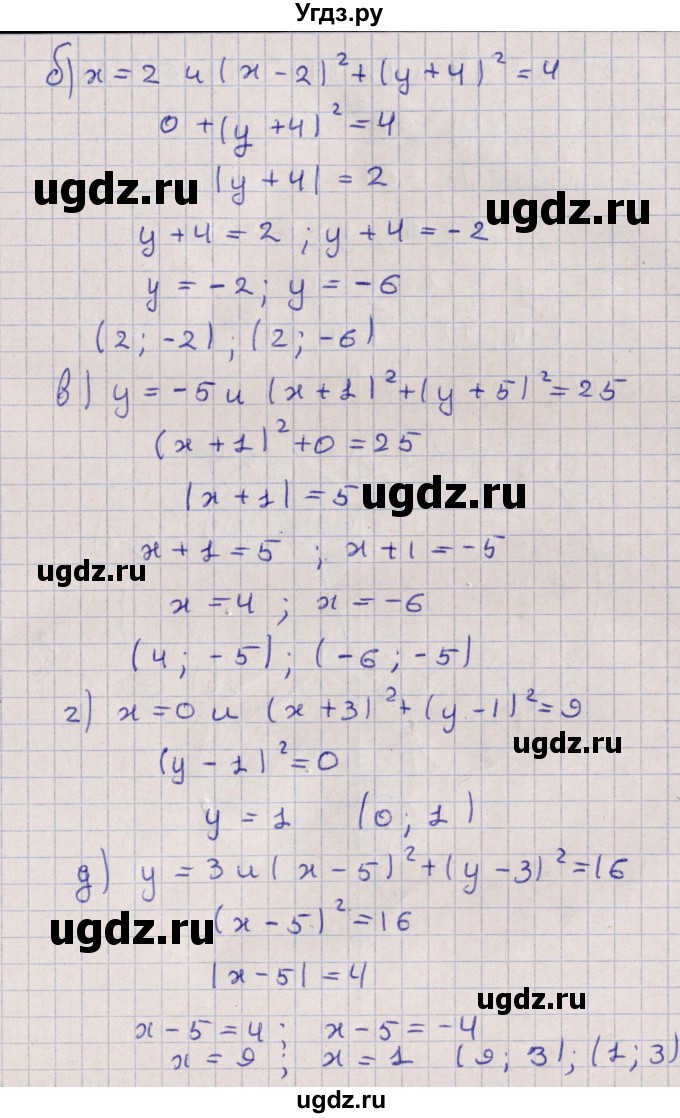 Угдз.ру
б) x = 2 и (x - 2)² + (y + 4)² = 4
0 + (y + 4)² = 4
|y + 4| = 2
ugdz.ru
ugdz.ru
y + 4 = 2 ; y + 4 = - 2
y = - 2; y = - 6
(2; -2); (2; -6)
в) y = - 5 и (x + 1)² + (y + 5)² = 25
(x + 1)² + 0 = 25
|x + 1| = 5
ugdz.ru
x + 1 = 5 ; x + 1 = - 5
ugdz.ru
x = 4 ; x = - 6
(4; - 5); (- 6; - 5)
г) x = 0 и (x + 3)² + (y - 1)² = 9
ugdz.ru
(y - 1)² = 0
y = 1 (0; 1)
д) y = 3 и (x - 5)² + (y - 3)² = 16
(x - 5)² = 16
ugdz.ru
|x - 5| = 4
ugdz.ru
x - 5 = 4 ; x - 5 = - 4
x = 9 ; x = 1 (9; 3); (1; 3)
ugdz.ru